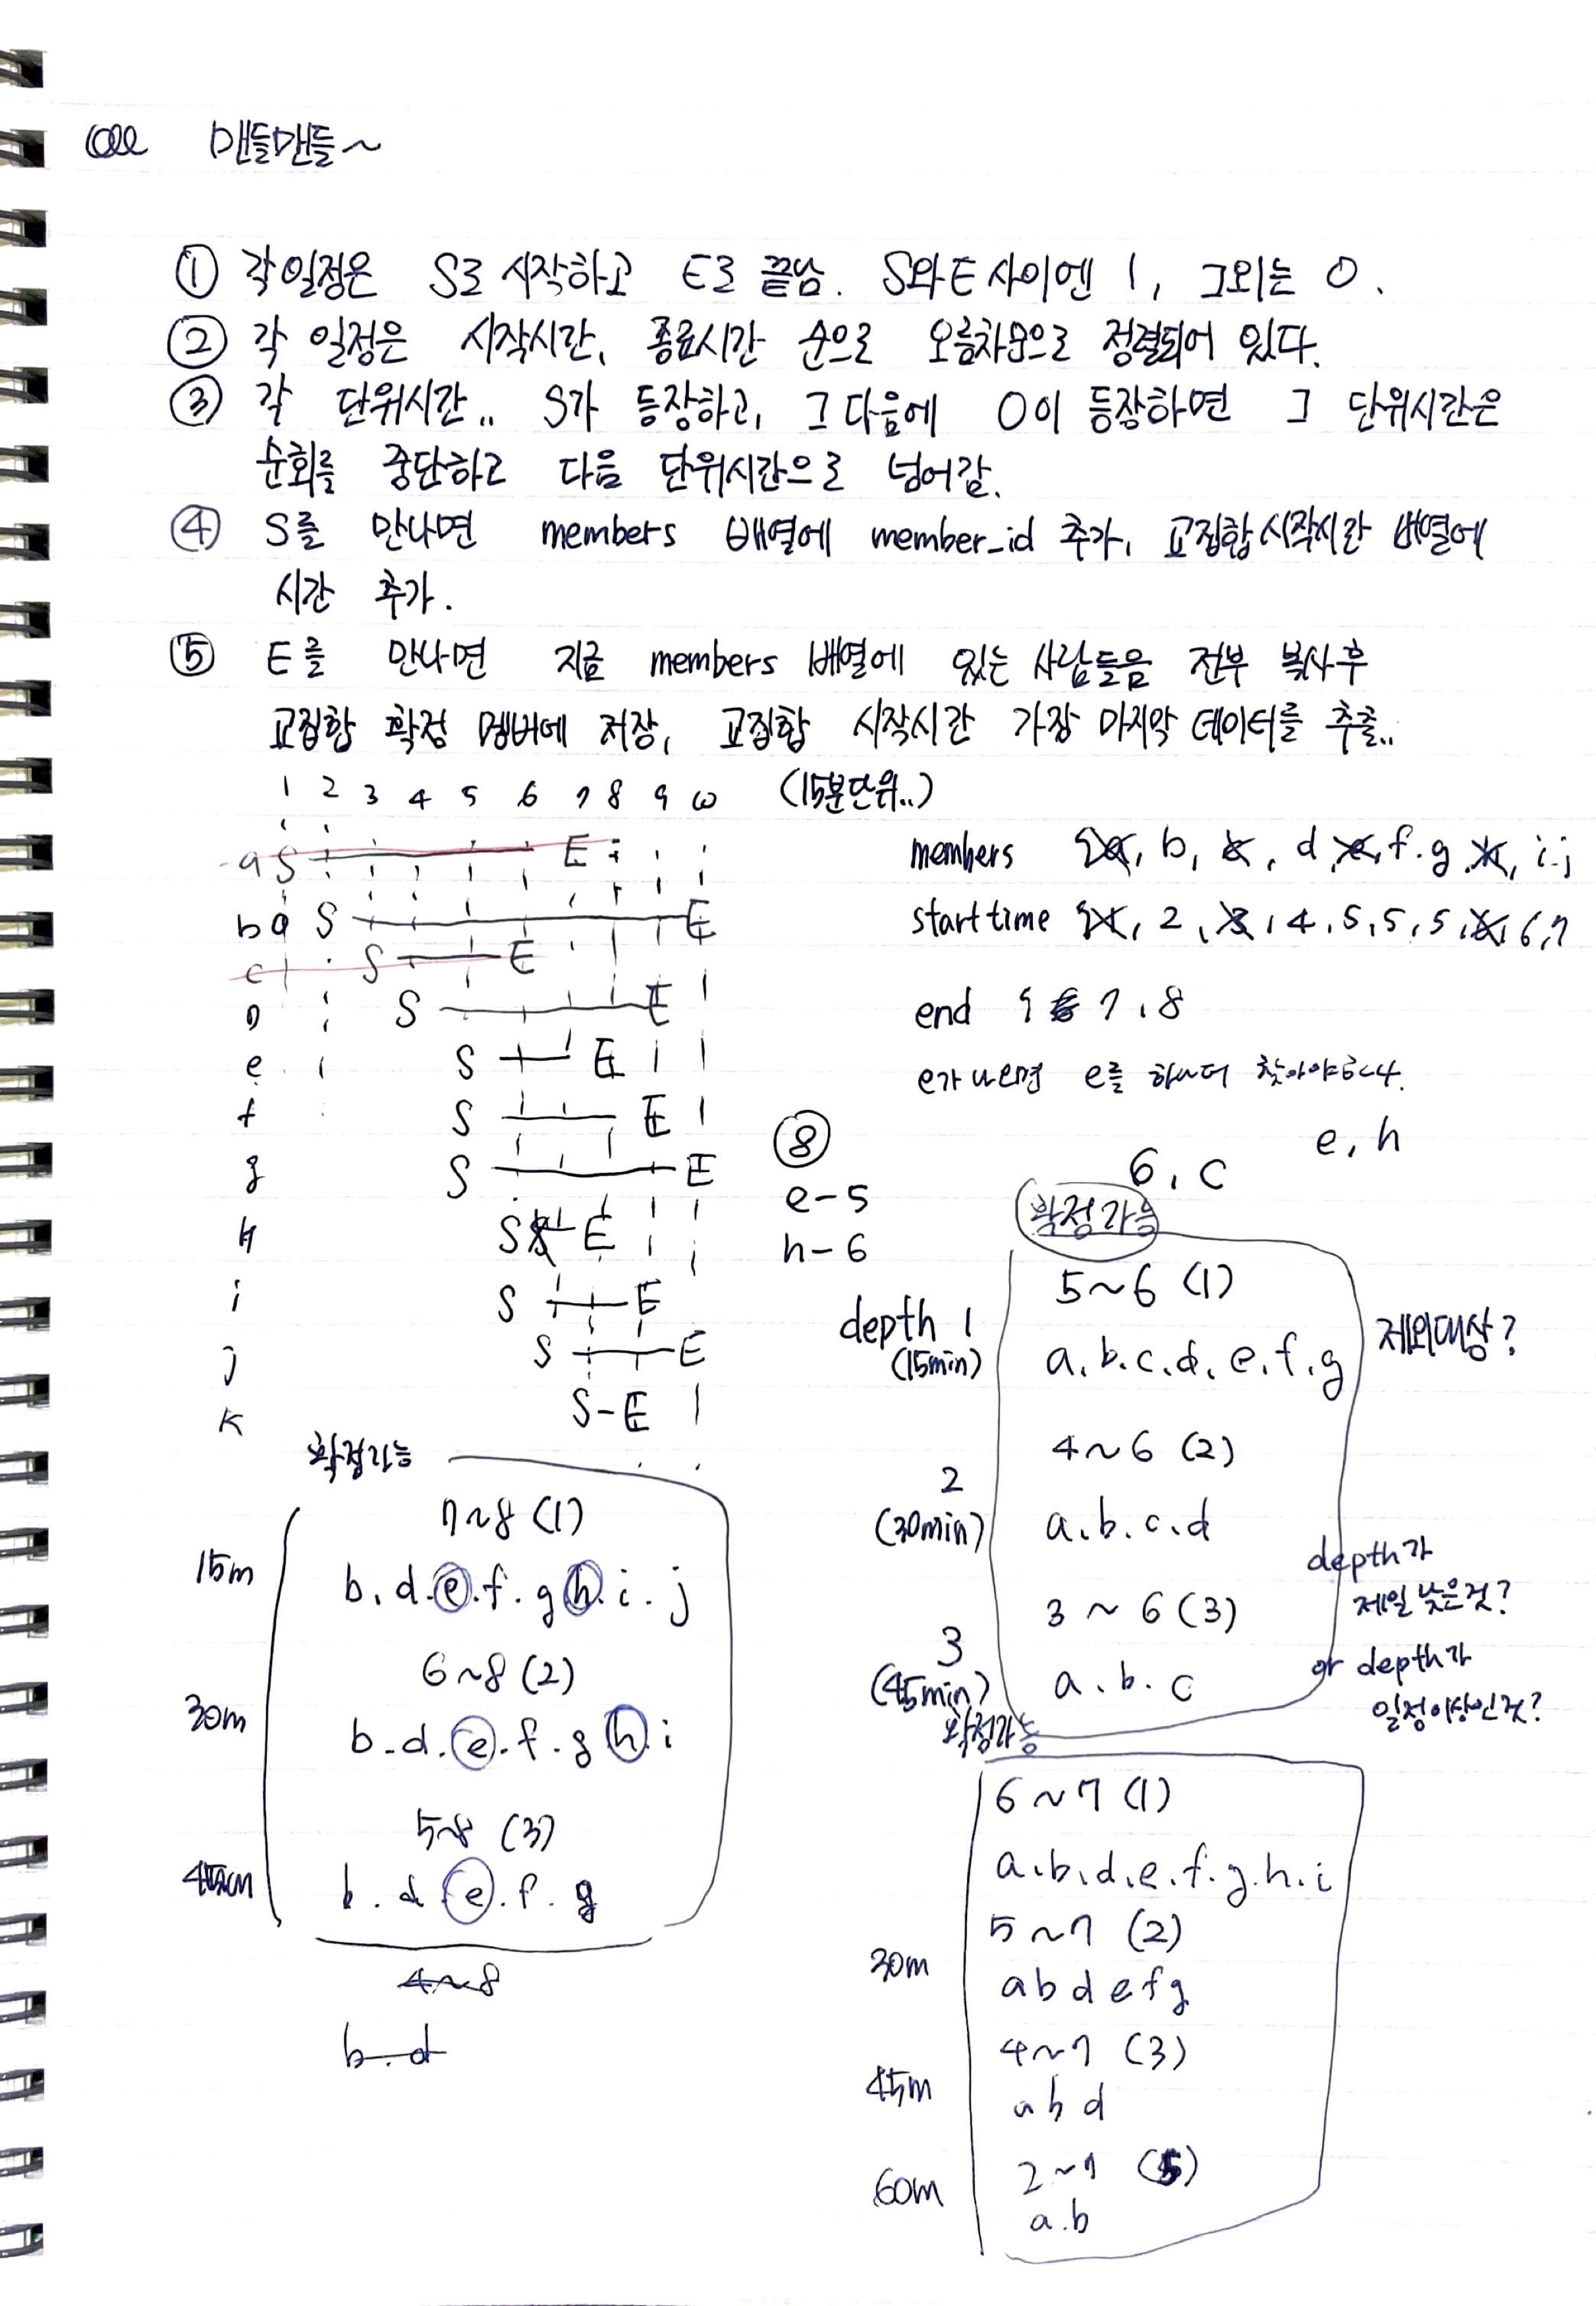 맨들맨들~
① 각 일정은 S로 시작하고 E로 끝남. S와 E 사이엔 1, 그외는 0.
② 각 일정은 시작시간, 종료시간 순으로 오름차순으로 정렬되어 있다.
③ 각 단위시간.. S가 등장하고, 그 다음에 0이 등장하면 그 단위시간은
순회를 중단하고 다음 단위시간으로 넘어감.
④ S를 만나면 members 배열에 member_id 추가, 교집합 시작시간 배열에
시간 추가.
⑤ E를 만나면 지금 members 배열에 있는 사람들을 전부 복사 후
교집합 확정 멤버에 저장, 교집합 시작시간 가장 마지막 데이터를 추출..
1 2 3 4 5 6 7 8 9 10 (15분단위..)
a S E
b S E
c S E
D S E
e S E
f S E
g S E
H S E
i S E
j S E
k S-E
members {a, b, c, d, e, f. g. h, i. j
start time {1, 2, 3, 4, 5, 5, 5, 6, 6, 7
end { 6 7, 8
e가 나오면 e를 하나더 찾아야한다.
⑧
e-5
h-6
e, h
6, c
확정가능
depth 1
(15min)
5~6 (1)
a. b. c. d. e. f. g
제외대상?
2
(30min)
4~6 (2)
a. b. c. d
3
(45min)
3~6 (3)
a. b. c
depth가
제일 낮은것?
or depth가
일정이상인것?
확정가능
15m
7~8 (1)
b. d. e. f. g h. i. j
30m
6~8 (2)
b. d. e. f. g h. i
45m
5~8 (3)
b. d e. f. g
4~8
b. d
확정가능
6~7 (1)
a. b. d. e. f. g. h. i
30m
5~7 (2)
a b d e f g
45m
4~7 (3)
a b d
60m
2~7 (5)
a. b